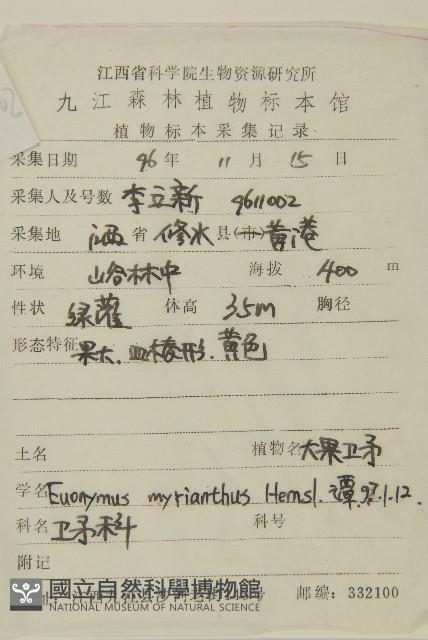 江西省科学院生物资源研究所
九江森林植物标本馆
植物标本采集记录
采集日期 96年 11月 15日
采集人及号数 李立新 9611002
采集地 江西省 修水县(市) 黄港
环境 山谷林中 海拔 400 m
性状 绿灌 体高 3.5m 胸径
形态特征 果大、四棱形、黄色
土名 植物名 大果卫矛
学名 Euonymus myrianthus Hemsl. 谭.97.1.12.
科名 卫矛科 科号
附记
國立自然科學博物館
NATIONAL MUSEUM OF NATURAL SCIENCE
邮编：332100